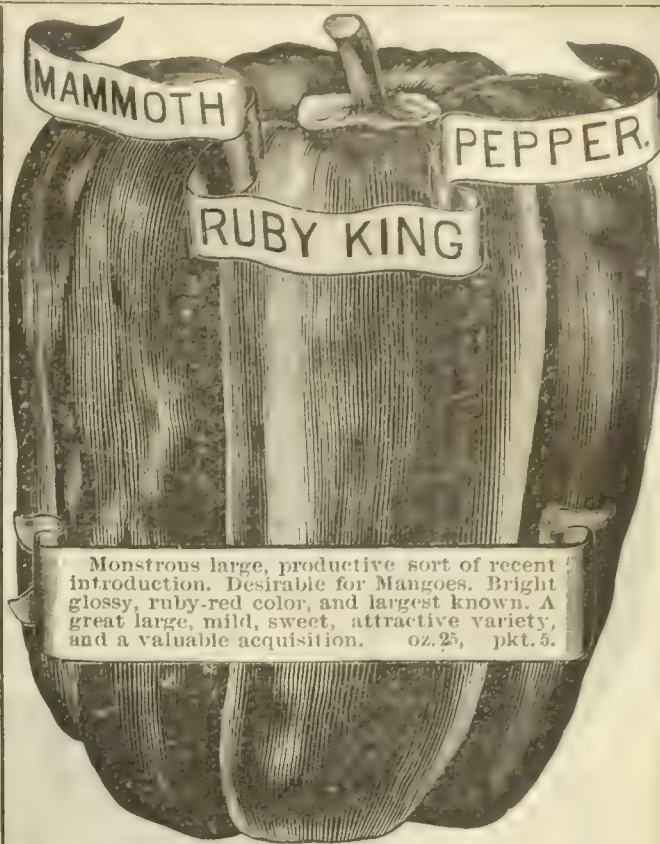 MAMMOTH
PEPPER.
RUBY KING
Monstrous large, productive sort of recent
introduction. Desirable for Mangoes. Bright
glossy, ruby-red color, and largest known. A
great large, mild, sweet, attractive variety,
and a valuable acquisition. oz. 25, pkt. 5.